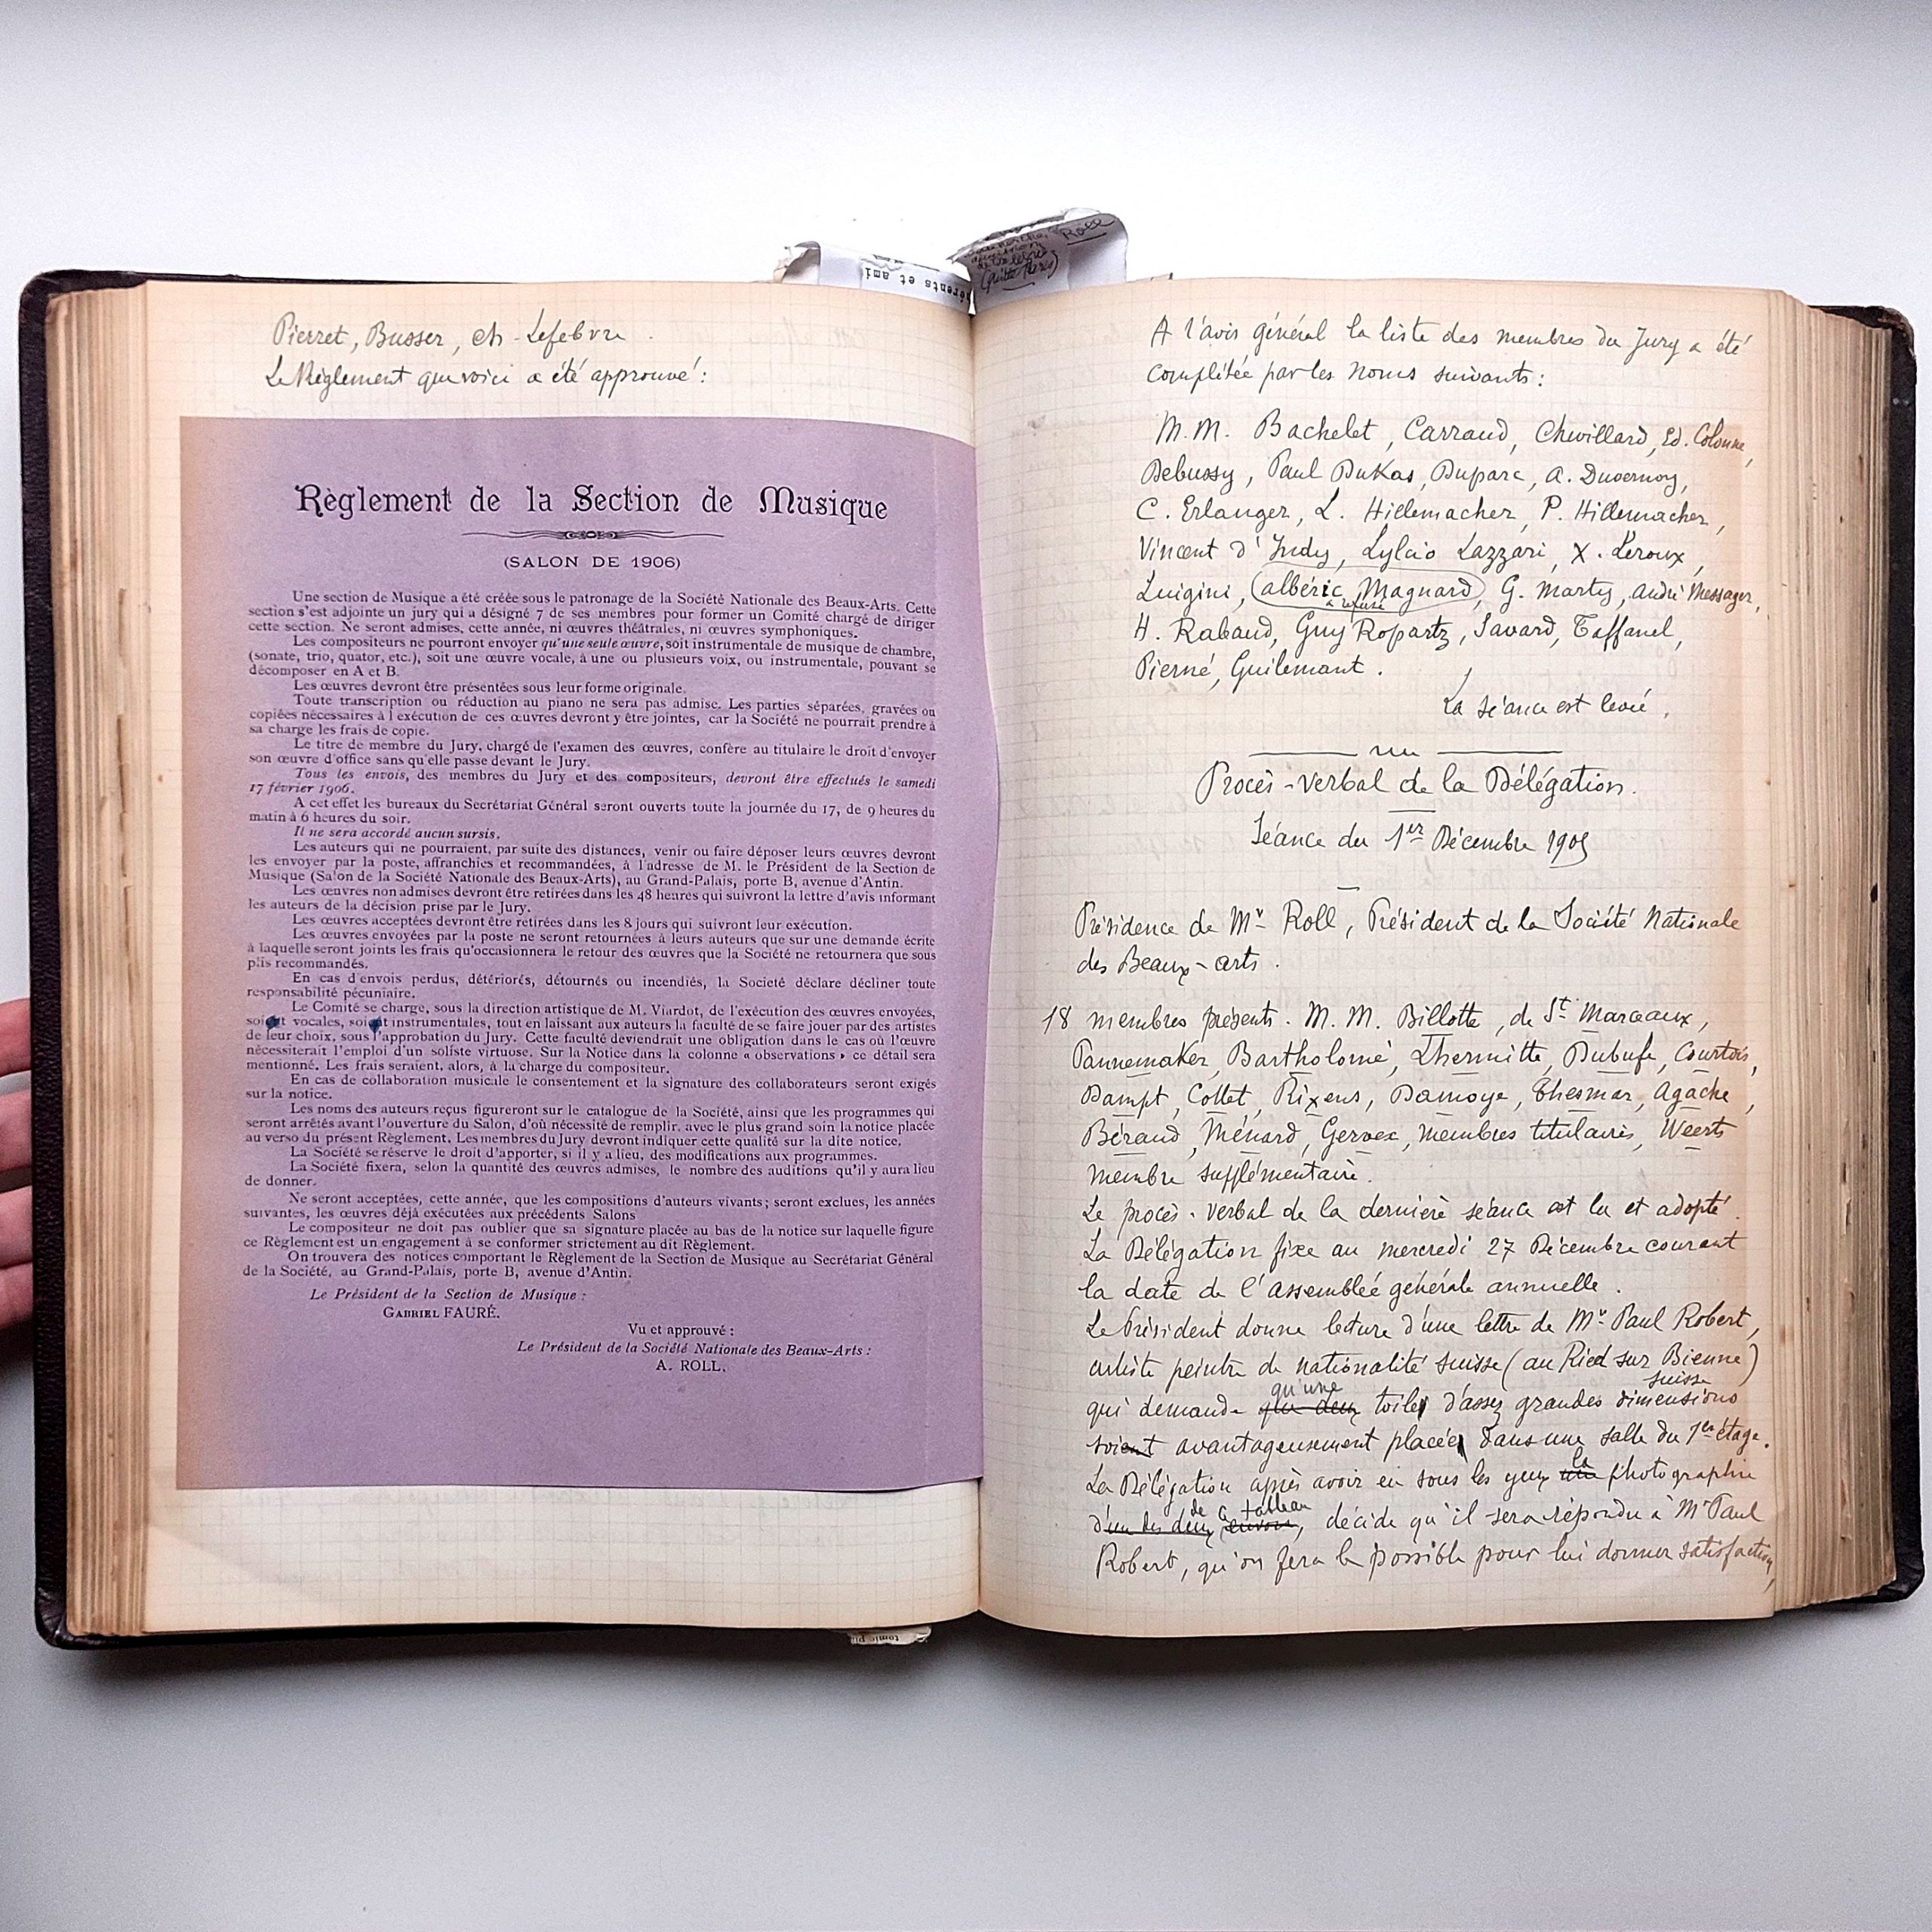 Roll
érents et ami
Pierret, Busser, Ch. Lefebvre.
Le Règlement que voici a été approuvé :
Règlement de la Section de Musique
(SALON DE 1906)
Une section de Musique a été créée sous le patronage de la Société Nationale des Beaux-Arts. Cette
section s'est adjointe un jury qui a désigné 7 de ses membres pour former un Comité chargé de diriger
cette section. Ne seront admises, cette année, ni œuvres théâtrales, ni œuvres symphoniques.
Les compositeurs ne pourront envoyer qu'une seule œuvre, soit instrumentale de musique de chambre,
(sonate, trio, quator, etc.), soit une œuvre vocale, à une ou plusieurs voix, ou instrumentale, pouvant se
décomposer en A et B.
Les œuvres devront être présentées sous leur forme originale.
Toute transcription ou réduction au piano ne sera pas admise. Les parties séparées, gravées ou
copiées nécessaires à l exécution de ces œuvres devront y être jointes, car la Société ne pourrait prendre à
sa charge les frais de copie.
Le titre de membre du Jury, chargé de l'examen des œuvres, confère au titulaire le droit d'envoyer
son œuvre d'office sans qu'elle passe devant le Jury.
Tous les envois, des membres du Jury et des compositeurs, devront être effectués le samedi
17 février 1906.
A cet effet les bureaux du Secrétariat Général seront ouverts toute la journée du 17, de 9 heures du
matin à 6 heures du soir.
Il ne sera accordé aucun sursis.
Les auteurs qui ne pourraient, par suite des distances, venir ou faire déposer leurs œuvres devront
les envoyer par la poste, affranchies et recommandées, à l'adresse de M. le Président de la Section de
Musique (Salon de la Société Nationale des Beaux-Arts), au Grand-Palais, porte B, avenue d'Antin.
Les œuvres non admises devront être retirées dans les 48 heures qui suivront la lettre d'avis informant
les auteurs de la décision prise par le Jury.
Les œuvres acceptées devront être retirées dans les 8 jours qui suivront leur exécution.
Les œuvres envoyées par la poste ne seront retournées à leurs auteurs que sur une demande écrite
à laquelle seront joints les frais qu'occasionnera le retour des œuvres que la Société ne retournera que sous
plis recommandés.
En cas d'envois perdus, détériorés, détournés ou incendiés, la Societé déclare décliner toute
responsabilité pécuniaire.
Le Comité se charge, sous la direction artistique de M. Viardot, de l'exécution des œuvres envoyées,
soient vocales, soient instrumentales, tout en laissant aux auteurs la faculté de se faire jouer par des artistes
de leur choix, sous l'approbation du Jury. Cette faculté deviendrait une obligation dans le cas où l'œuvre
nécessiterait l'emploi d'un soliste virtuose. Sur la Notice dans la colonne « observations » ce détail sera
mentionné. Les frais seraient, alors, à la charge du compositeur.
En cas de collaboration musicale le consentement et la signature des collaborateurs seront exigés
sur la notice.
Les noms des auteurs reçus figureront sur le catalogue de la Société, ainsi que les programmes qui
seront arrêtés avant l'ouverture du Salon, d'où nécessité de remplir, avec le plus grand soin la notice placée
au verso du présent Règlement. Les membres du Jury devront indiquer cette qualité sur la dite notice.
La Société se réserve le droit d'apporter, si il y a lieu, des modifications aux programmes.
La Société fixera, selon la quantité des œuvres admises, le nombre des auditions qu'il y aura lieu
de donner.
Ne seront acceptées, cette année, que les compositions d'auteurs vivants; seront exclues, les années
suivantes, les œuvres déjà exécutées aux précédents Salons
Le compositeur ne doit pas oublier que sa signature placée au bas de la notice sur laquelle figure
ce Règlement est un engagement à se conformer strictement au dit Règlement.
On trouvera des notices comportant le Règlement de la Section de Musique au Secrétariat Général
de la Société, au Grand-Palais, porte B, avenue d'Antin.
Le Président de la Section de Musique :
GABRIEL FAURÉ.
Vu et approuvé :
Le Président de la Société Nationale des Beaux-Arts :
A. ROLL.
A l'avis général la liste des membres du Jury a été
complétée par les noms suivants :
M.M. Bachelet, Carraud, Chevillard, Ed. Colonne,
Debussy, Paul Dukas, Duparc, A. Duvernoy,
C. Erlanger, L. Hillemacher, P. Hillemacher,
Vincent d'Indy, Sylvio Lazzari, X. Leroux,
Luigini, albéric Magnard, G. Marty, andré Messager,
a refusé
H. Rabaud, Guy Ropartz, Savard, Taffanel,
Pierné, Guilemant.
La séance est levée.
Procès-verbal de la Délégation.
Séance du 1er Décembre 1905
Présidence de Mr Roll, Président de la Société Nationale
des Beaux-arts.
18 membres présents. M.M. Billotte, de St Marceaux,
Pannemaker, Bartholomé, Lhermitte, Dubufe, Courtois,
Dampt, Cottet, Rixens, Damoye, Thesmar, Agache,
Béraud, Ménard, Gervex, membres titulaires, Weerts
membre supplémentaire.
Le procès-verbal de la dernière séance est lu et adopté.
La Délégation fixe au mercredi 27 Décembre courant
la date de l'assemblée générale annuelle.
Le Président donne lecture d'une lettre de Mr Paul Robert,
artiste peintre de nationalité suisse (au Ried sur Bienne)
suisse
qu'une
qui demande que deux toiles d'assez grandes dimensions
soient avantageusement placées dans une salle du 1er étage.
la
La Délégation après avoir eu sous les yeux une photographie
de ce tableau
d'un des deux envois, décide qu'il sera répondu à Mr Paul
Robert, qu'on fera le possible pour lui donner satisfaction,